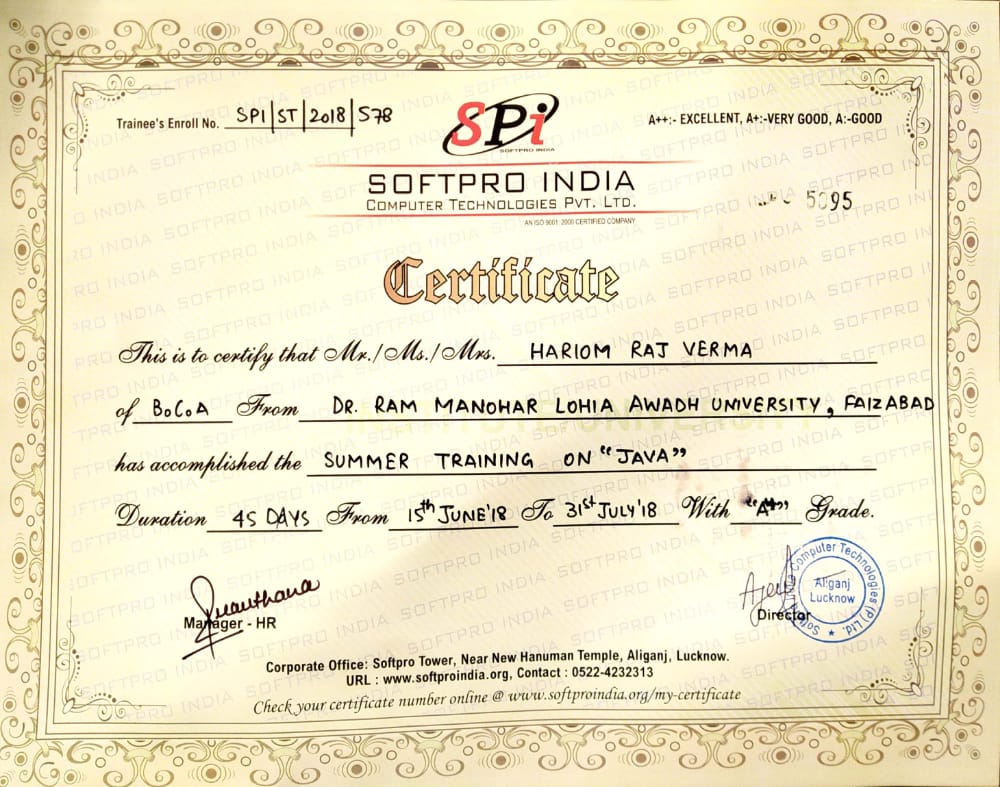 Trainee's Enroll No. SPI|ST|2018|578
SPi
SOFTPRO INDIA
A++:- EXCELLENT, A+:-VERY GOOD, A:-GOOD
SOFTPRO INDIA
COMPUTER TECHNOLOGIES PVT. LTD.
AN ISO 9001: 2000 CERTIFIED COMPANY
5695
Certificate
This is to certify that Mr./Ms./Mrs. HARIOM RAJ VERMA
of B.C.A From DR. RAM MANOHAR LOHIA AWADH UNIVERSITY, FAIZABAD
has accomplished the SUMMER TRAINING ON "JAVA"
Duration 45 DAYS From 15th JUNE'18 To 31st JULY'18 With "A++" Grade.
Manager - HR
Director
Softpro India Computer Technologies (P) Ltd.
Aliganj
Lucknow
Corporate Office: Softpro Tower, Near New Hanuman Temple, Aliganj, Lucknow.
URL : www.softproindia.org, Contact : 0522-4232313
Check your certificate number online @ www.softproindia.org/my-certificate